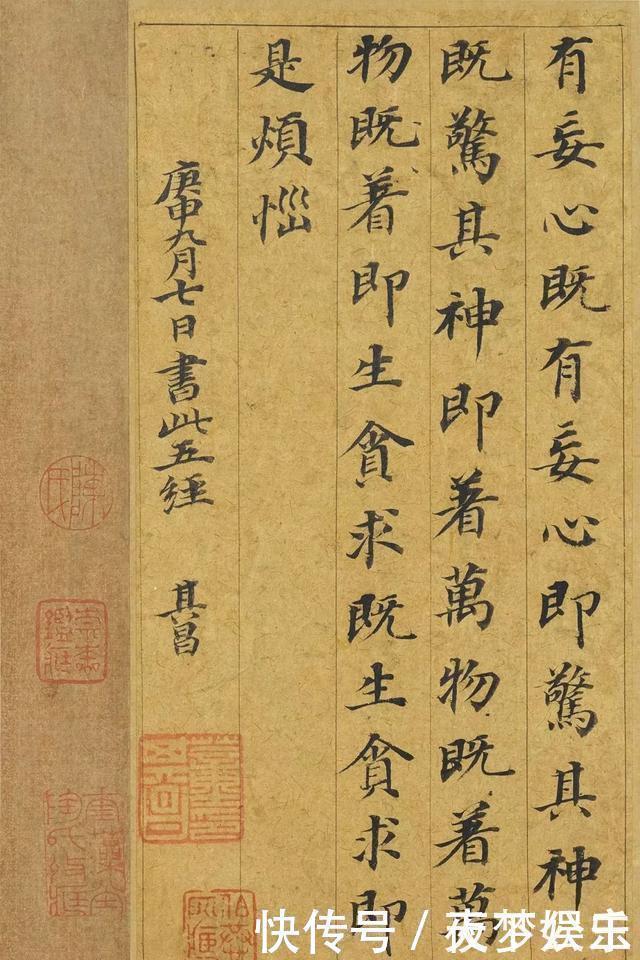 有妄心既有妄心即驚其神
既驚其神即著萬物既著萬
物既著即生貪求既生貪求即
是煩惱
庚申九月七日書此五經 其昌
快传号 / 夜梦娱乐